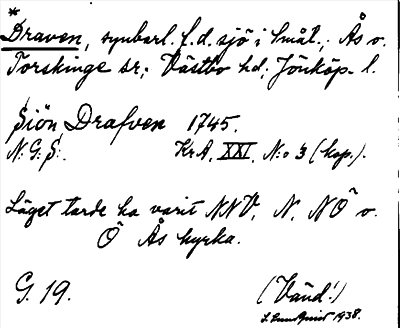 *
Draven, synbarl. f.d. sjö i Smål., Ås o.
Torskinge sr; Västbo hd; Jönköp. l.
Siön Drafven 1745.
N.G.S:. KrA. XXI. N:o 3 (kop.).
Läget torde ha varit NNV, N, NÖ o.
Ö Ås kyrka.
G. 19. (Vänd!)
S. Lundquist 1938.